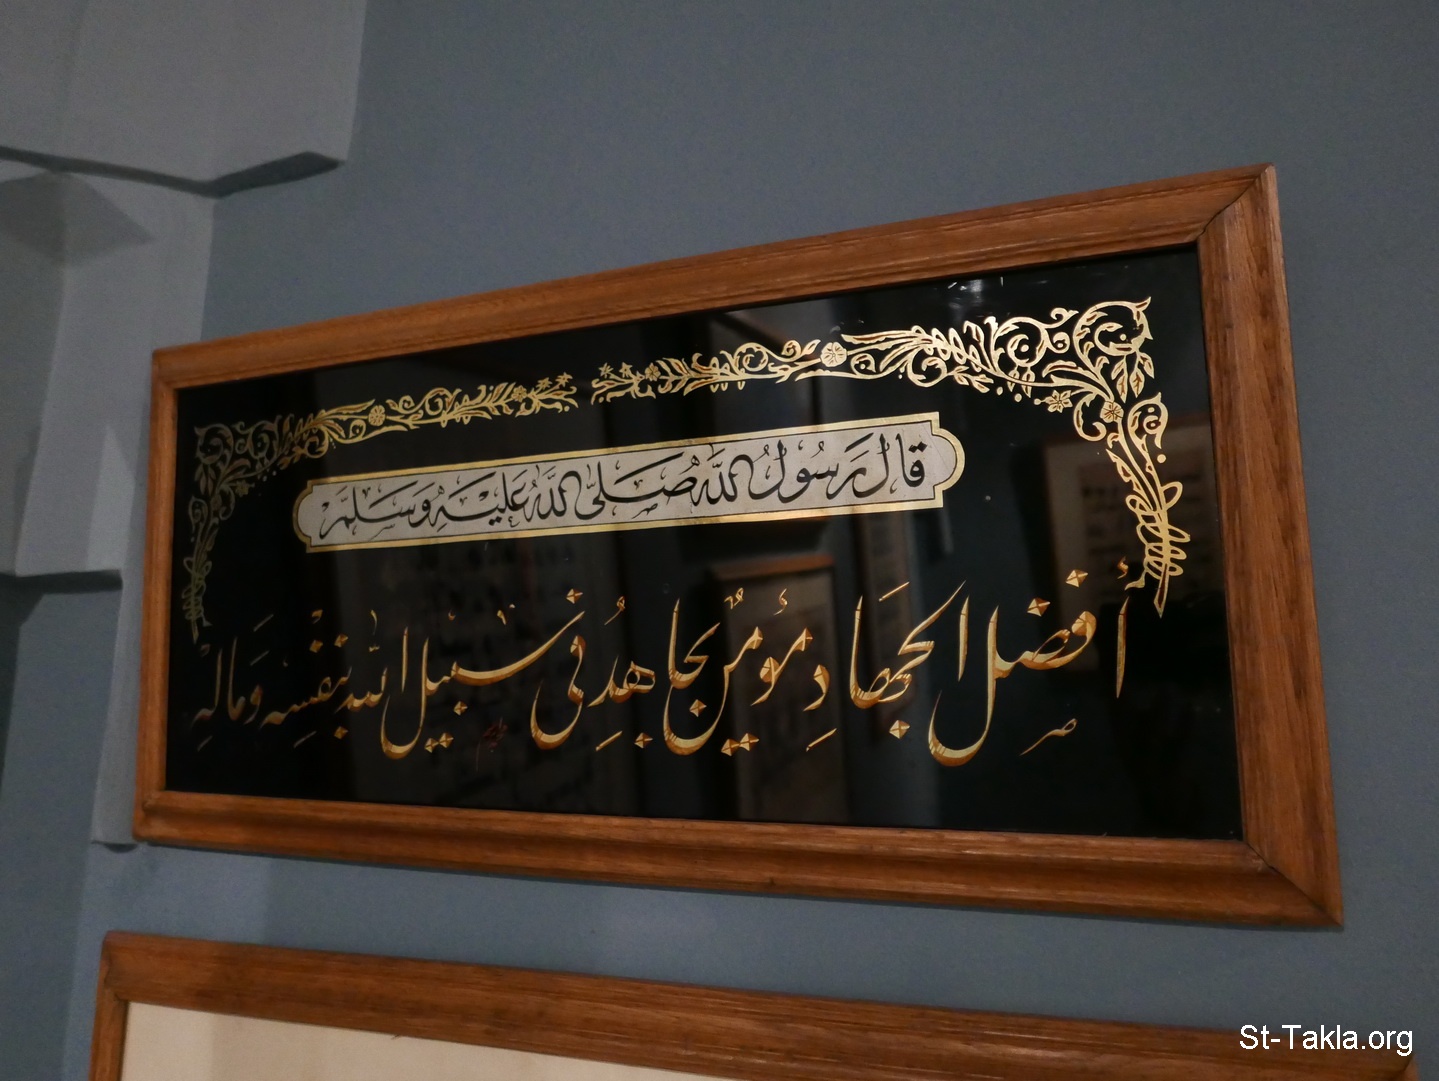 قَالَ رَسُولُ اللَّهِ صَلَّى اللَّهُ عَلَيْهِ وَسَلَّمَ
أفضل الجهادِ مُؤمن مجاهدٍ في سبيل الله بنفْسِهِ وَمَالِهِ
St-Takla.org